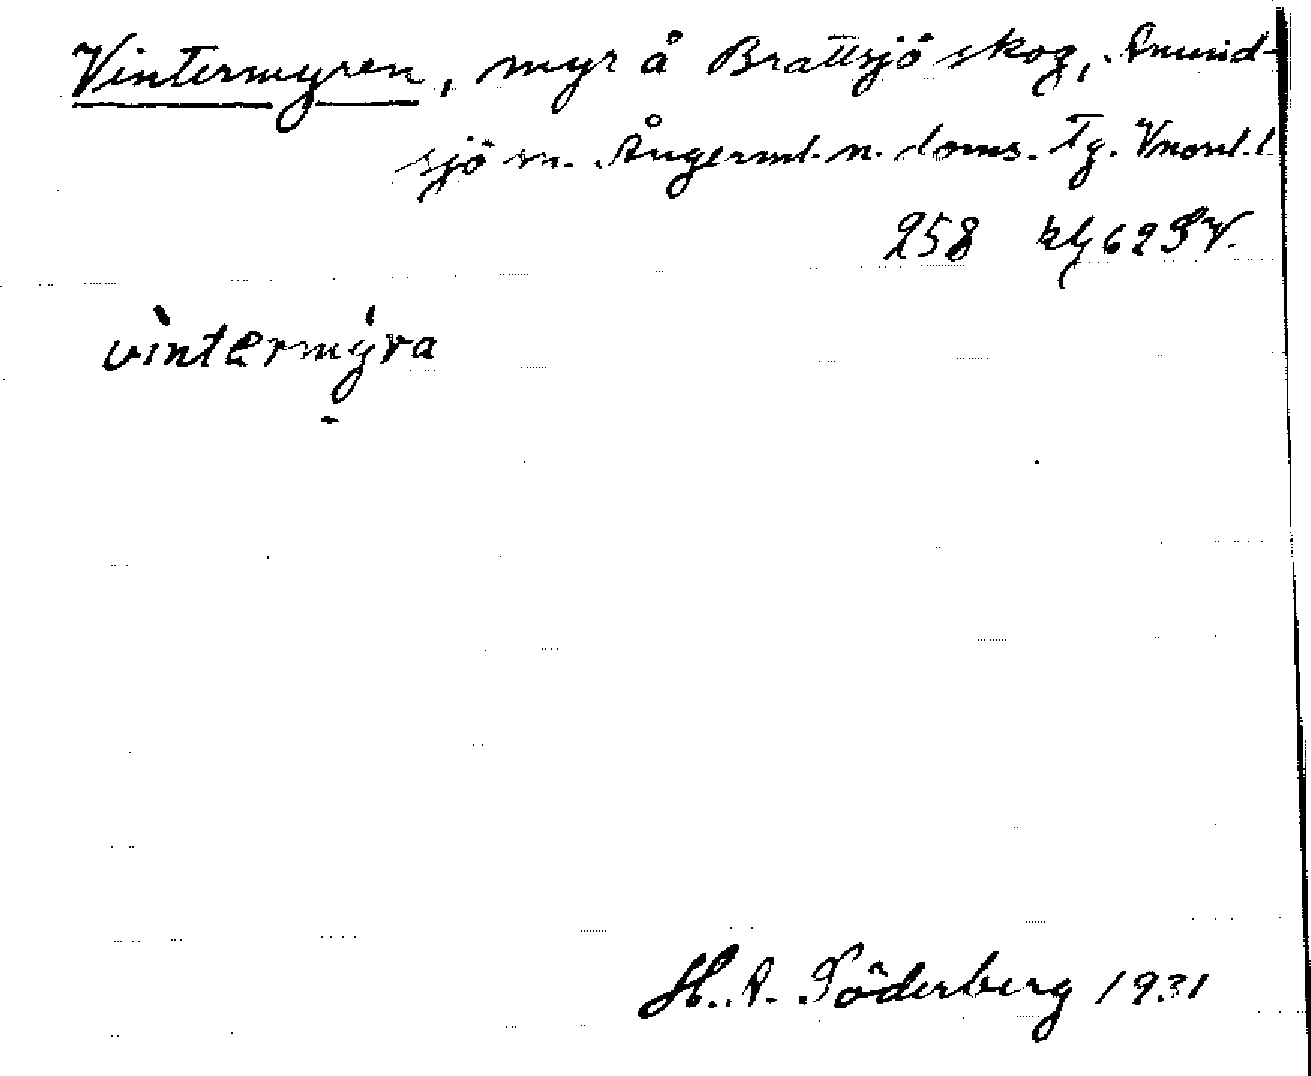 Vintermyren, myr å Brattsjö skog, Anund-
sjö sn. Ångerml. n. doms. Tg. Vnorrl. l.
258 kbl 62 SV.
vìntermýra
H. A. Söderberg 1931